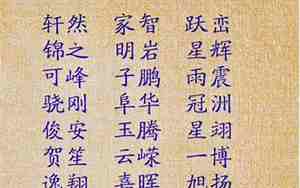 轩然 家智 跃峦
锦之 明岩 星辉
可峰 子鹏 雨震
骁刚 阜华 冠洲
俊安 玉腾 星翊
贺笙 云嵘 一博
逸翔 喜晖 旭扬